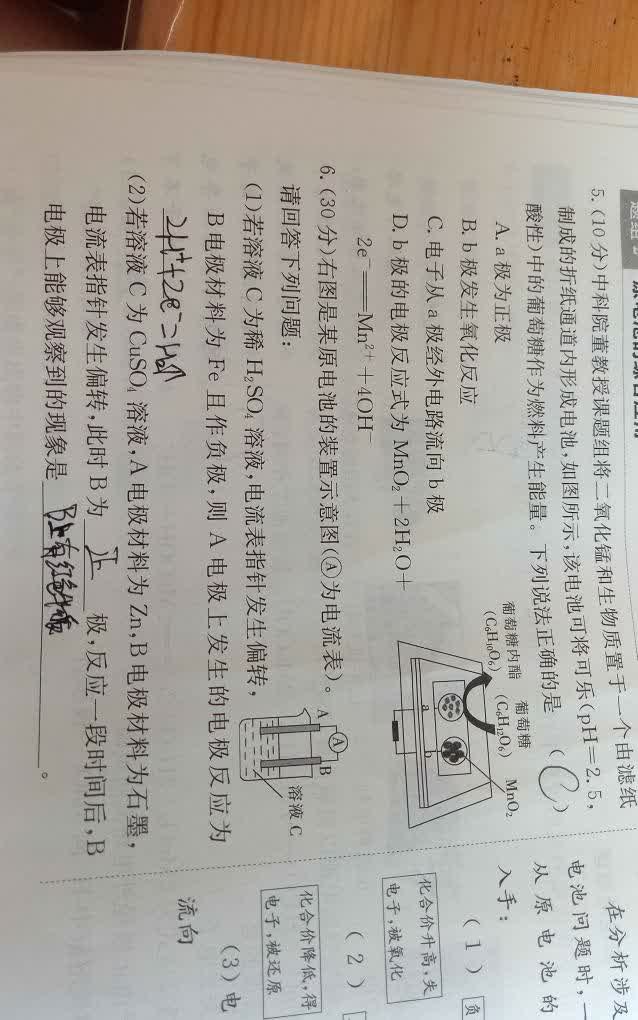 5.(10分)中科院董教授课题组将二氧化锰和生物质置于一个由滤纸
制成的折纸通道内形成电池,如图所示,该电池可将可乐(pH=2.5,
酸性)中的葡萄糖作为燃料产生能量。下列说法正确的是 (C)
A.a极为正极
B.b极发生氧化反应
C.电子从a极经外电路流向b极
D.b极的电极反应式为MnO₂+2H₂O+
2e⁻══Mn²⁺+4OH⁻
葡萄糖内酯
(C₆H₁₀O₆)
葡萄糖
(C₆H₁₂O₆)
MnO₂
a
b
6.(30分)右图是某原电池的装置示意图(Ⓐ为电流表)。
请回答下列问题:
(1)若溶液C为稀H₂SO₄溶液,电流表指针发生偏转,
B电极材料为Fe且作负极,则A电极上发生的电极反应为
2H⁺+2e⁻=H₂↑
(2)若溶液C为CuSO₄溶液,A电极材料为Zn,B电极材料为石墨,
电流表指针发生偏转,此时B为 正 极,反应一段时间后,B
电极上能够观察到的现象是 B上有红色 。
A
A
B
溶液C
在分析涉及
电池问题时,一
从原电池的
入手:
(1)
负
化合价升高,失
电子,被氧化
(2)
化合价降低,得
电子,被还原
(3)电
流向